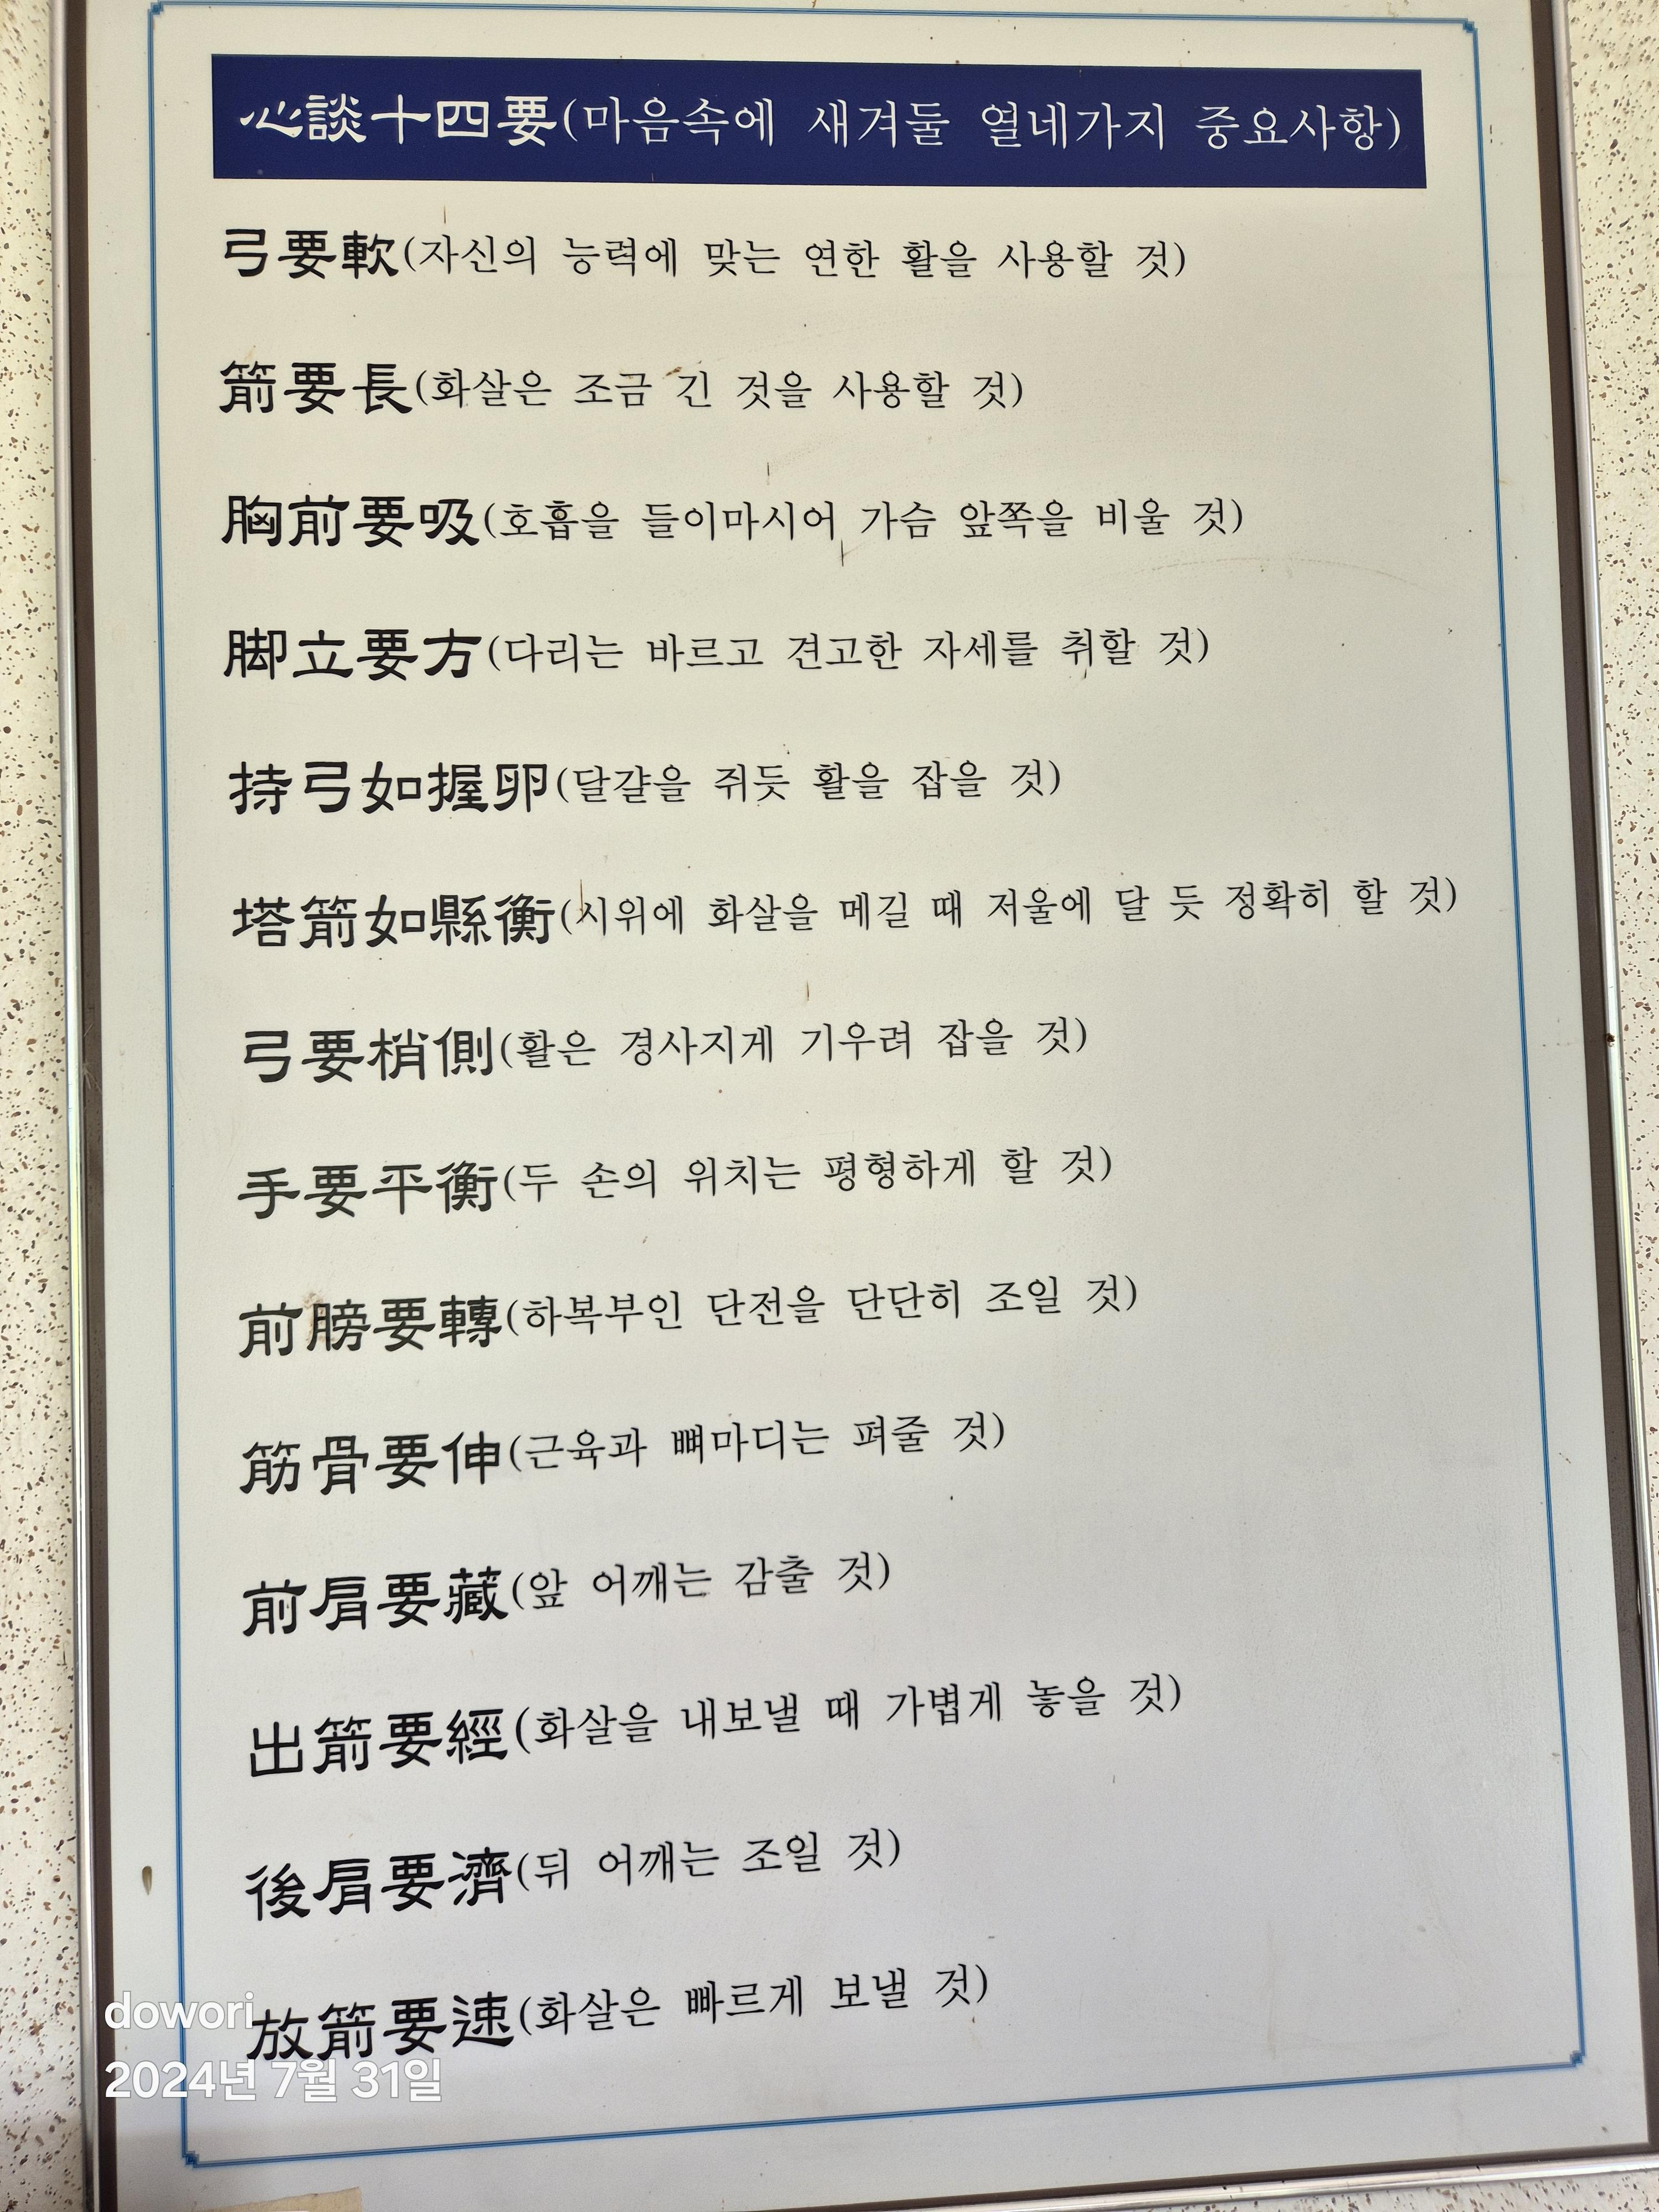 心談十四要(마음속에 새겨둘 열네가지 중요사항)
弓要軟(자신의 능력에 맞는 연한 활을 사용할 것)
箭要長(화살은 조금 긴 것을 사용할 것)
胸前要吸(호흡을 들이마시어 가슴 앞쪽을 비울 것)
脚立要方(다리는 바르고 견고한 자세를 취할 것)
持弓如握卵(달걀을 쥐듯 활을 잡을 것)
塔箭如縣衡(시위에 화살을 메길 때 저울에 달 듯 정확히 할 것)
弓要梢側(활은 경사지게 기우려 잡을 것)
手要平衡(두 손의 위치는 평형하게 할 것)
前膀要轉(하복부인 단전을 단단히 조일 것)
筋骨要伸(근육과 뼈마디는 펴줄 것)
前肩要藏(앞 어깨는 감출 것)
出箭要經(화살을 내보낼 때 가볍게 놓을 것)
後肩要濟(뒤 어깨는 조일 것)
放箭要速(화살은 빠르게 보낼 것)
dowori
2024년 7월 31일